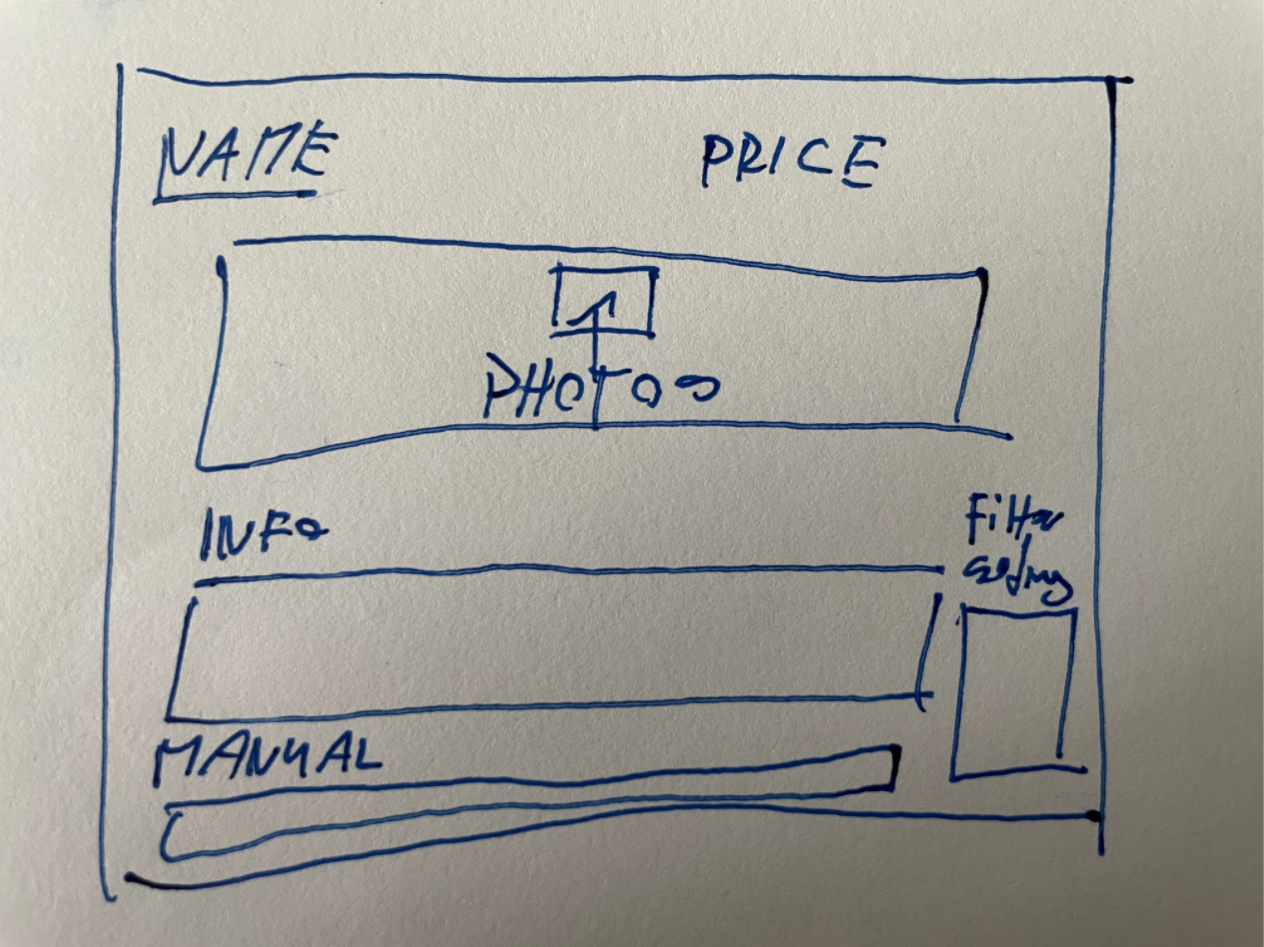 NAME
PRICE
PHOTOS
INFO
Filter
MANUAL